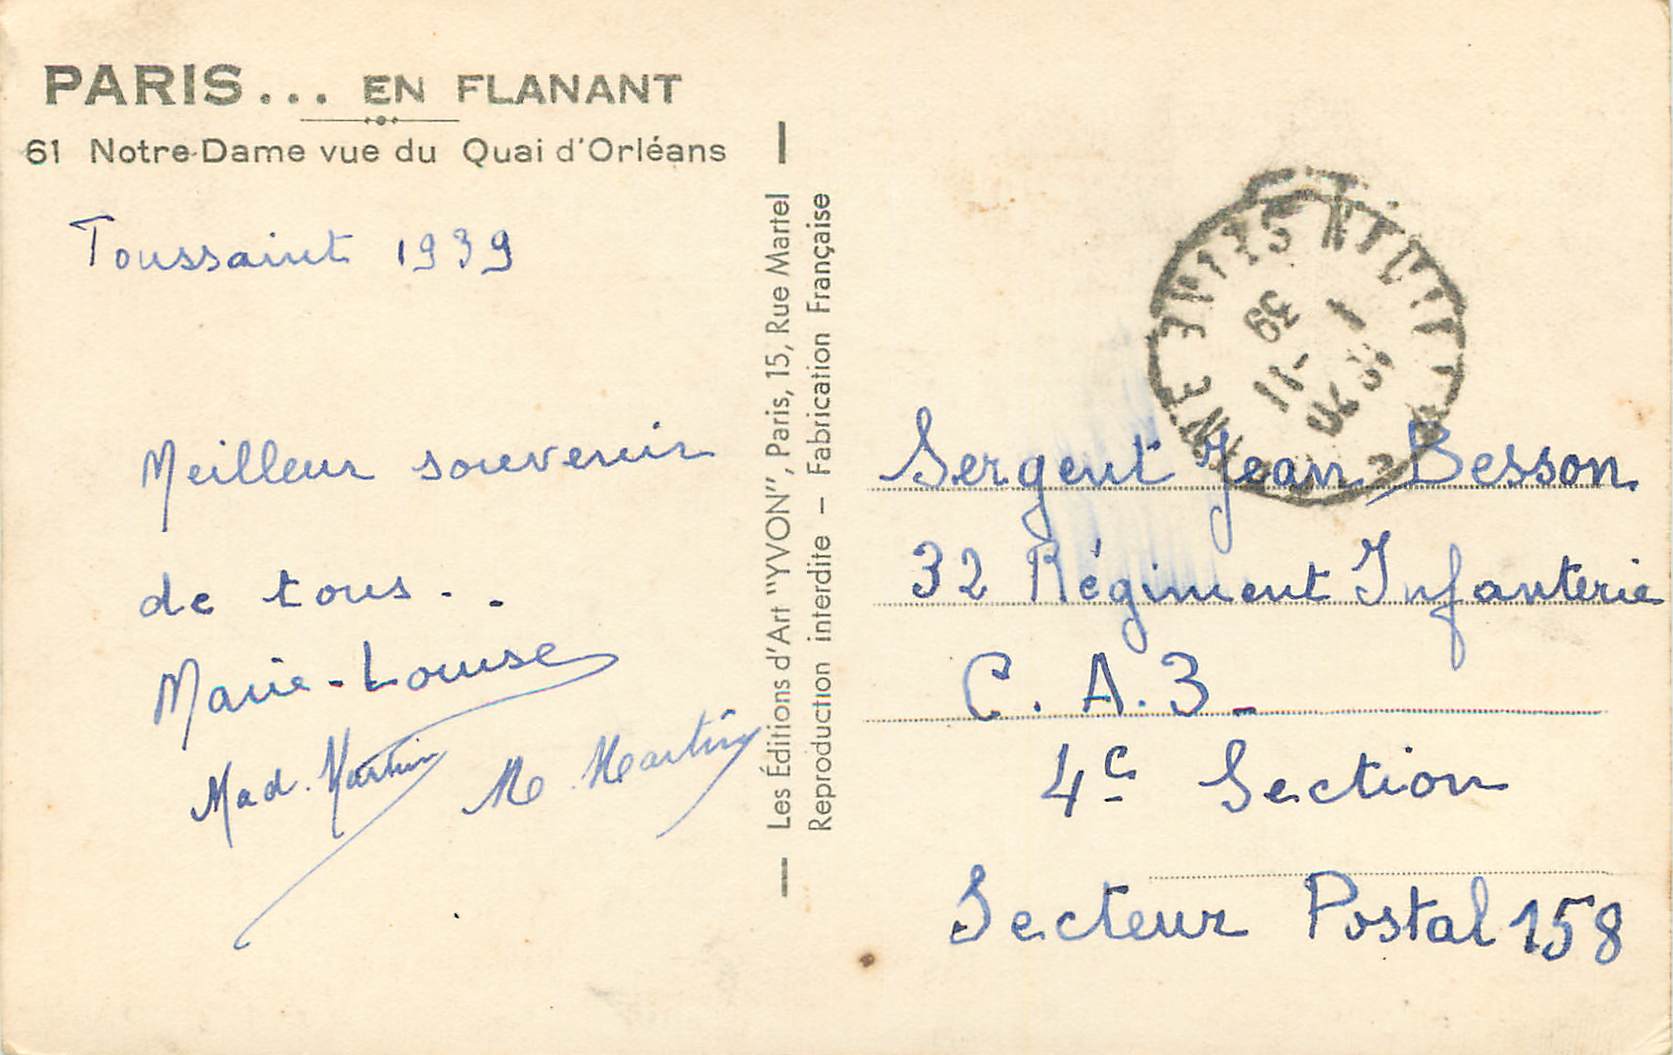 PARIS... EN FLANANT
61 Notre-Dame vue du Quai d'Orléans
Toussaint 1939
Meilleur souvenir
de tous..
Marie-Louise
Mad. Martin M. Martin
Les Éditions d'Art "YVON", Paris, 15, Rue Martel
Reproduction interdite – Fabrication Française
SEINE
1 -11
39
Sergent Jean Besson.
32 Régiment Infanterie
C. A. 3_
4e Section
Secteur Postal 158